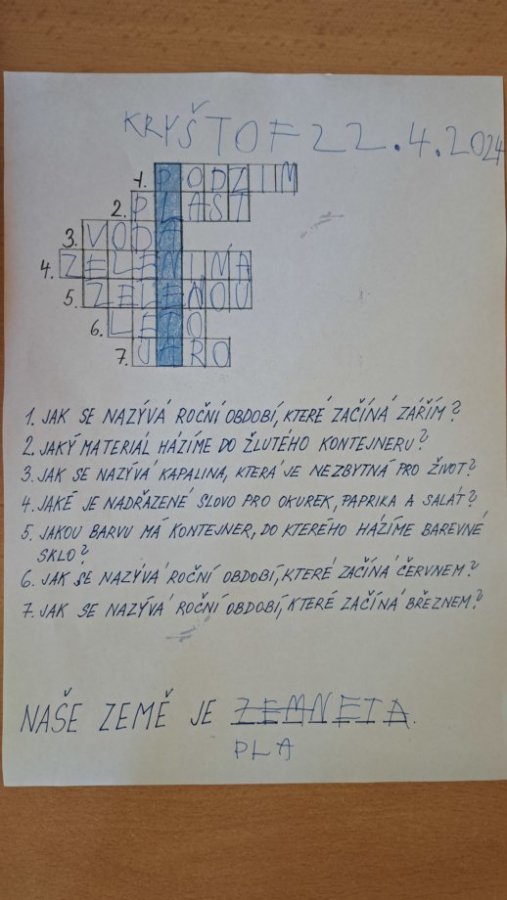 KRYŠTOF 22.4.2024
1. PODZIM
2. PLAST
3. VODA
4. ZELENINA
5. ZELENOU
6. LÉTO
7. JARO
1. JAK SE NAZÝVÁ ROČNÍ OBDOBÍ, KTERÉ ZAČÍNÁ ZÁŘÍM?
2. JAKÝ MATERIÁL HÁZÍME DO ŽLUTÉHO KONTEJNERU?
3. JAK SE NAZÝVÁ KAPALINA, KTERÁ JE NEZBYTNÁ PRO ŽIVOT?
4. JAKÉ JE NADŘAZENÉ SLOVO PRO OKUREK, PAPRIKA A SALÁT?
5. JAKOU BARVU MÁ KONTEJNER, DO KTERÉHO HÁZÍME BAREVNÉ
SKLO?
6. JAK SE NAZÝVÁ ROČNÍ OBDOBÍ, KTERÉ ZAČÍNÁ ČERVNEM?
7. JAK SE NAZÝVÁ ROČNÍ OBDOBÍ, KTERÉ ZAČÍNÁ BŘEZNEM?
NAŠE ZEMĚ JE ZEMNETA.
PLA